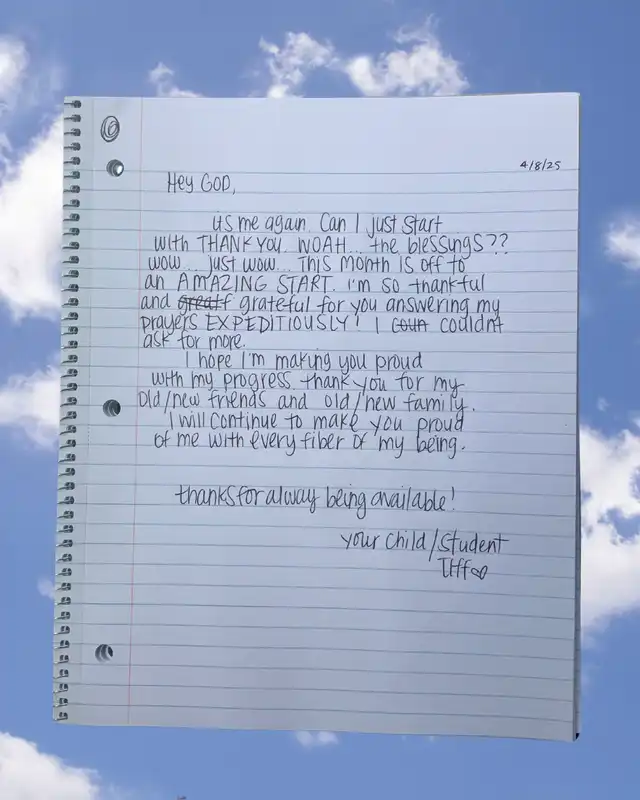 6
4/8/25
Hey GOD,
its me again. Can I just start
with THANK YOU. WOAH... the blessings??
wow... just wow... This month is off to
an AMAZING START. I'm so thankful
and greatf grateful for you answering my
prayers EXPEDITIOUSLY! I coun couldnt
ask for more.
I hope I'm making you proud
with my progress. thank you for my
old/new friends and old/new family.
I will continue to make you proud
of me with every fiber of my being.
thanks for alway being available!
your child/student
Tiff